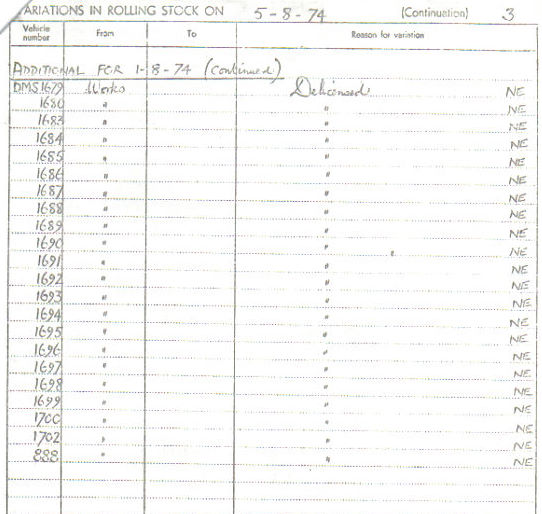 ARIATIONS IN ROLLING STOCK ON 5-8-74 (Continuation) 3
Vehicle number From To Reason for variation
ADDITIONAL FOR 1-8-74 (continued)
DMS1679 Works Delicensed NE
1680 " " NE
1683 " " NE
1684 " " NE
1685 " " NE
1686 " " NE
1687 " " NE
1688 " " NE
1689 " " NE
1690 " " NE
1691 " " NE
1692 " " NE
1693 " " NE
1694 " " NE
1695 " " NE
1696 " " NE
1697 " " NE
1698 " " NE
1699 " " NE
1700 " " NE
1702 " " NE
888 " " NE